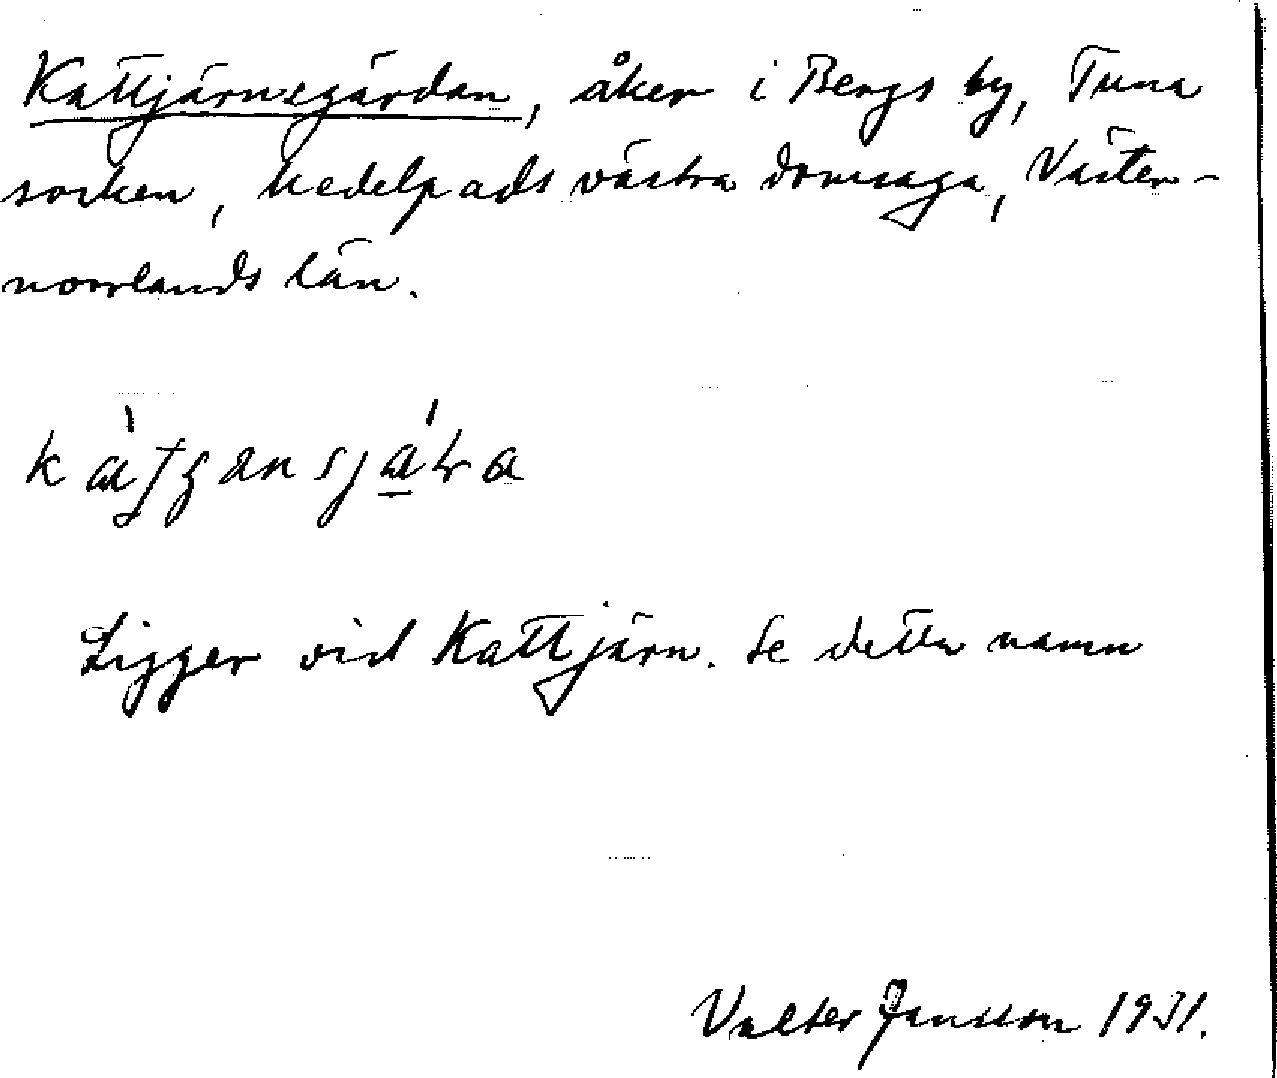 Kattjärnsgärdan, åker i Bergs by, Tuna
socken, Medelpads västra domsaga, Väster-
norrlands län.
Ligger vid Kattjärn. Se detta namn
Valter Jansson 1931.